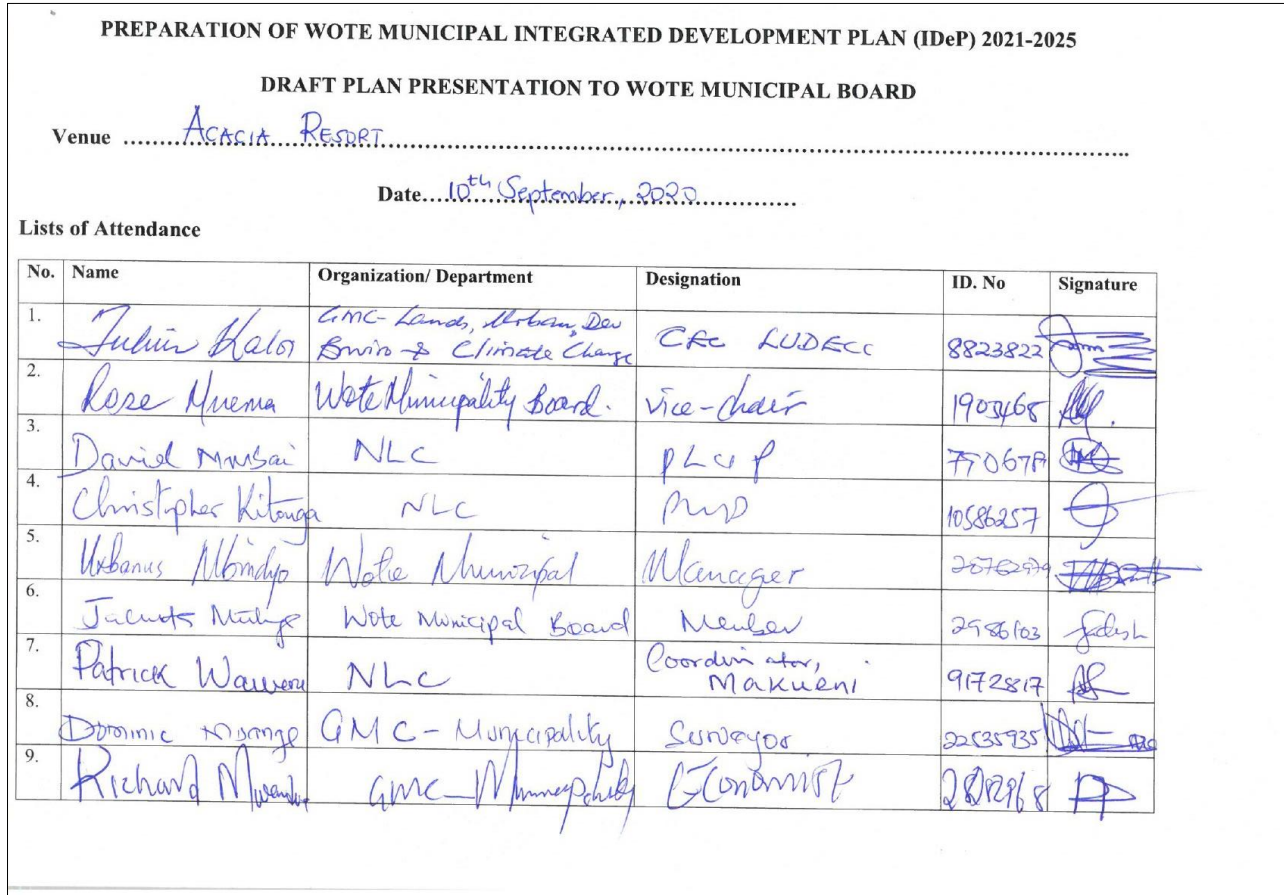 PREPARATION OF WOTE MUNICIPAL INTEGRATED DEVELOPMENT PLAN (IDeP) 2021-2025
DRAFT PLAN PRESENTATION TO WOTE MUNICIPAL BOARD
Venue ACACIA RESORT
Date 10th September, 2020
Lists of Attendance
No. Name Organization/ Department Designation ID. No Signature
1. GMC- Lands, Urban, Dev
Enviro & Climate Change CEC LUDECC 8823822
2. Rose Muema Wote Municipality Board. Vice-chair
3. David NLC
4. Christopher Kitonga NLC 10586257
5. Urbanus Mbindyo Wote Municipal Manager
6. Wote Municipal Board Member 2986103
7. Patrick Waweru NLC Coordinator,
Makueni 9172817
8. Dominic GMC - Municipality Surveyor 22535935
9. Richard GMC - Municipality Economist